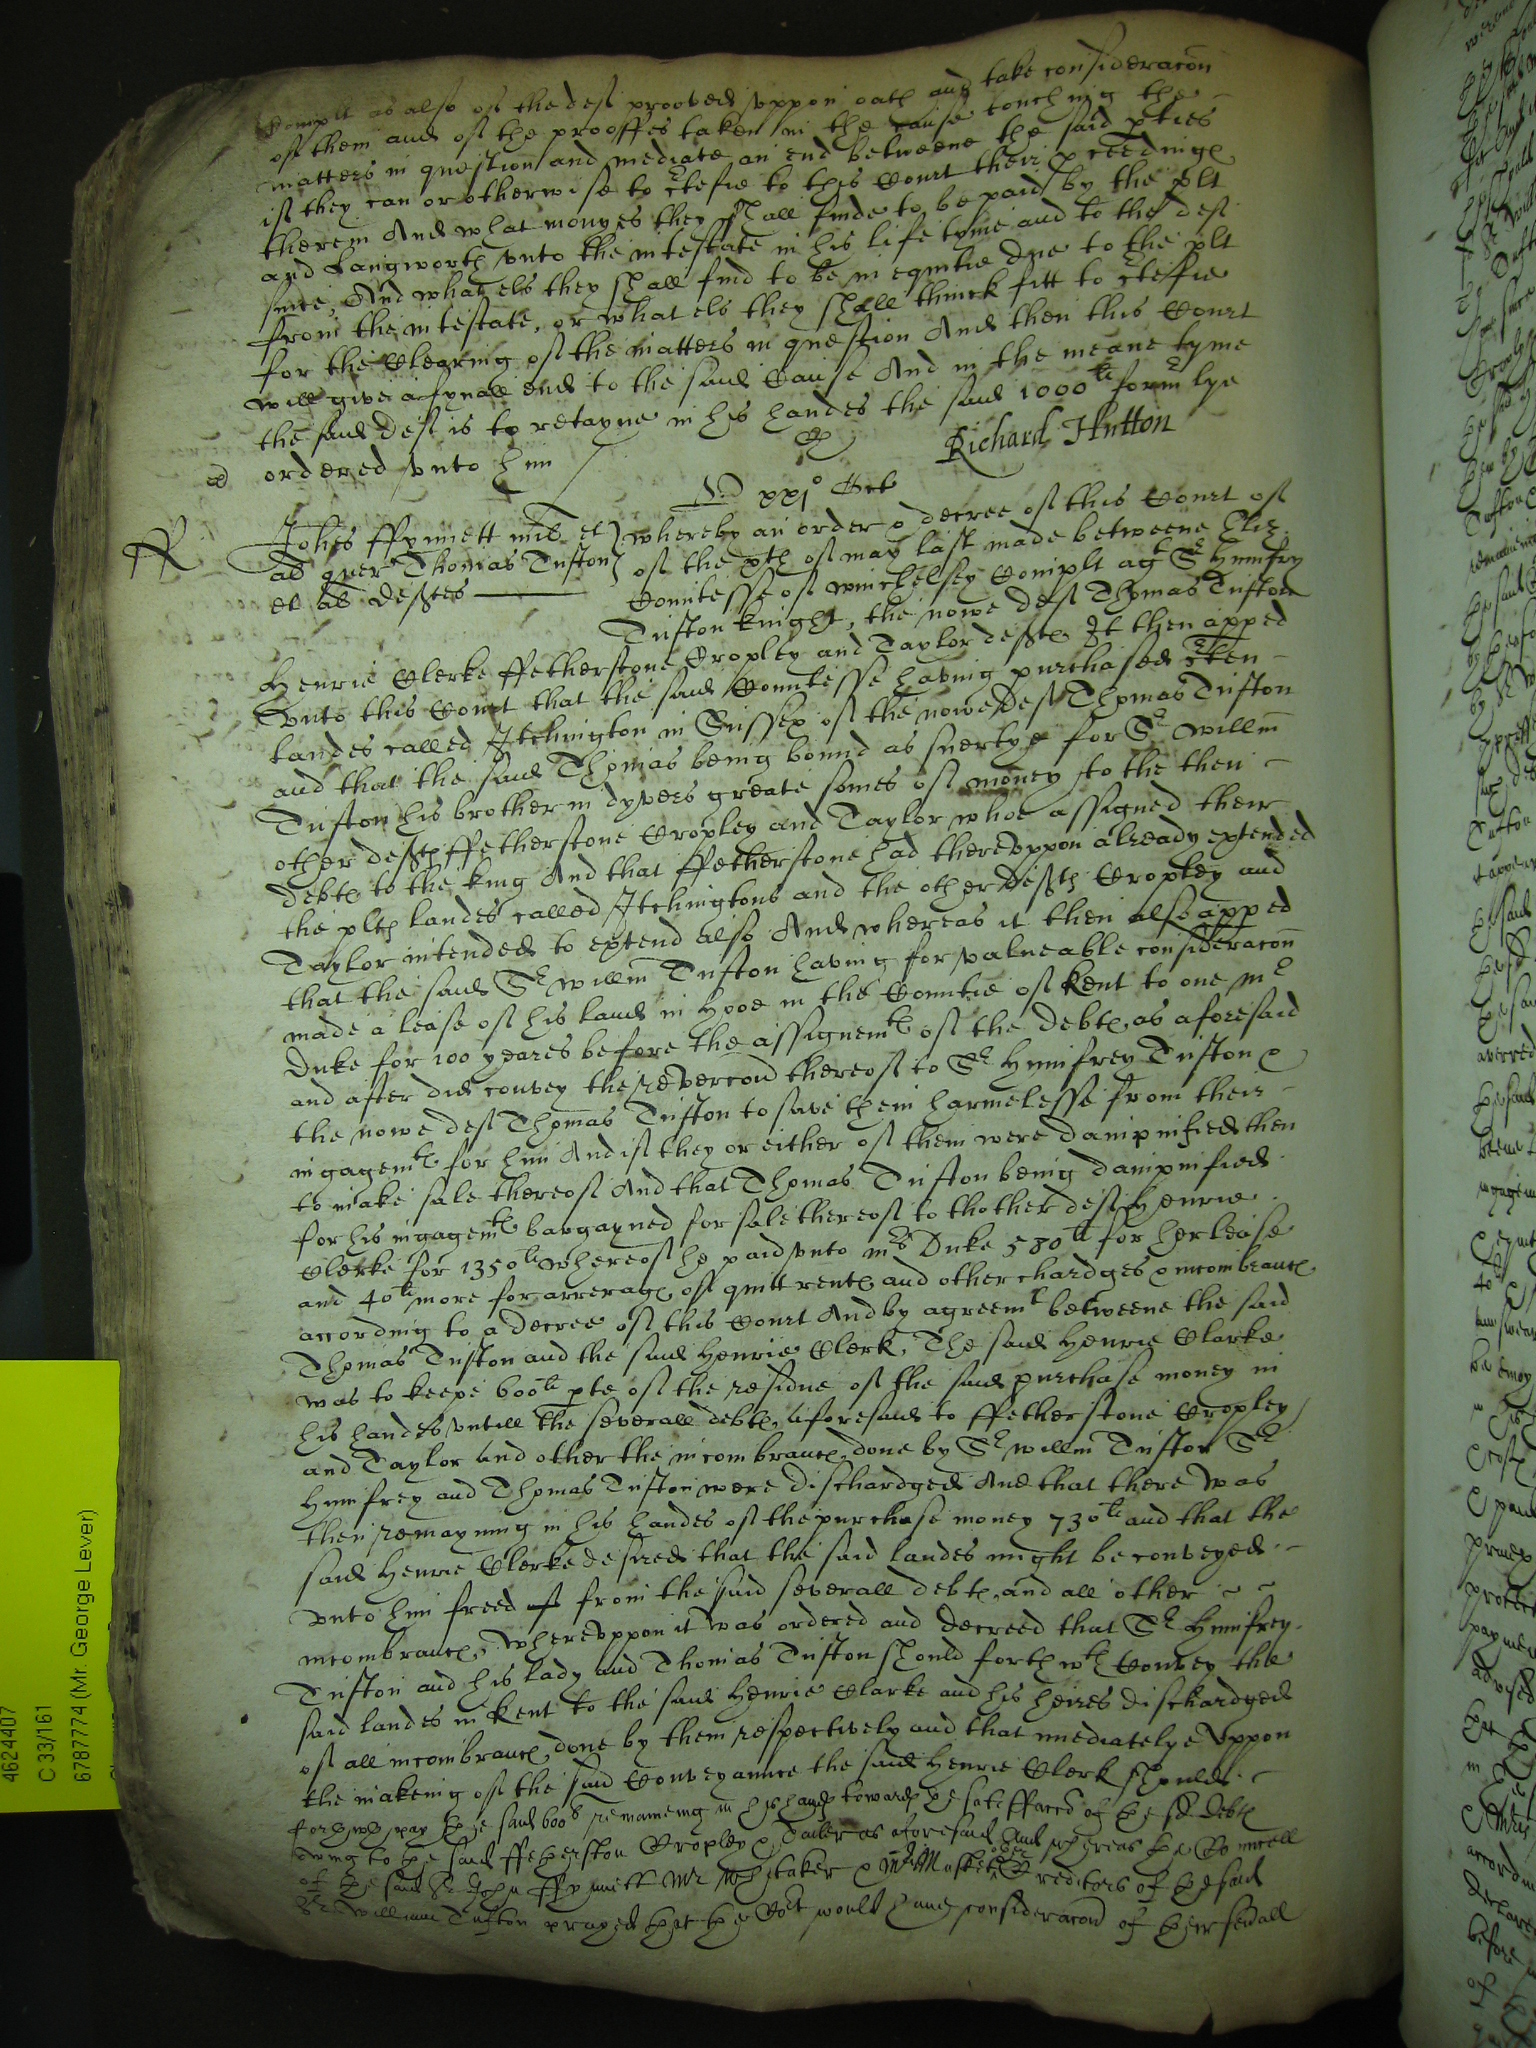 Complt as also of the deft prooved vppon oath and take consideracon
of them and of the prooffes taken in the cause touching the
matters in question and mediate an end betweene the said pties
if they can or otherwise to ctefie to this Court their pceeding
therein And what monyes they shall finde to be paid by the plt
and Langworth vnto the intestate in his life tyme and to the deft
since, And what els they shall find to be in equitie due to the plt
from the intestate, or what els they shall thinck fitt to cteffie
for the cleering of the matters in question And then this Court
will give a fynall end to the said Cause And in the meane tyme
the said deft is to retayne in his handes the said 1000li formlye
ordered vnto him
Richard Hutton
xxjo Oct
Johes ffynnett mil et
al quer Thomas Tufton
et al deftes
whereby an order & decree of this Court of
of the xth of may last made betweene Eliz
Comitesse of winchelsey Complt agt Sr Humfry
Tufton knight, the nowe deft Thomas Tufton
Henrie Clerke ffetherstone Cropley and Taylor deftes It then apped
vnto this Court that the said Countesse having purchased cten
landes called Itchington in Sussex of the nowe deft Thomas Tufton
and that the said Thomas being bound as suertye for Sr Willm
Tufton his brother in dyvers greate somes of money to the then
other deftes ffetherstone Cropley and Taylor whoe assigned their
debtes to the king And that ffetherstone had therevppon already extended
the pltes landes called Itchingtons and the other deftes Cropley and
Taylor intended to extend also And whereas it then also apped
that the said Sr Willm Tufton having for valueable consideracon
made a lease of his land in Hooe in the Countie of Kent to one mr
Duke for 100 yeares before the assignemt of the debtes as aforesaid
and after did convey the revercon thereof to Sr Humfrey Tufton &
the nowe deft Thomas Tufton to save them harmelesse from their
ingagemt for him And if they or either of them were dampnified then
to make sale thereof And that Thomas Tufton being dampnified
for his ingagemt bargayned for sale thereof to thother deft Henrie
Clerke for 1350li whereof he paid vnto mrs Duke 580li for her lease
and 40li more for arrerages of quitt rentes and other chardges & incombrances
according to a decree of this Court And by agreemt betweene the said
Thomas Tufton and the said Henrie Clerk, The said Henrie Clarke
was to keepe 600li pte of the residue of the said purchase money in
his handes vntill the severall debtes aforesaid to ffetherstone Cropley
and Taylor and other the incombrances done by Sr willm Tufton Sr
Humfrey and Thomas Tufton were dischardged And that there was
then remayning in his handes of the purchase money 730li and that the
said Henrie Clerke desired that the said landes might be conveyed
vnto him freed from the said severall debtes, and all other
incombrances, Wherevppon it was ordered and decreed that Sr Humfrey
Tufton and his lady and Thomas Tufton should forthwth Convey the
said landes in Kent to the said Henrie Clarke and his heires dischardged
of all incombrances done by them respectively and that imediatelye vppon
the makeing of the said Conveyannce the said Henrie Clerk should
forthwth pay the said 600li remaineing in his handes towardes the satisffaccon of the sd debtes
owing to the said ffetherston Cropley & Tailor as aforesaid And whereas the Councell
of the said Sr John ffynnett Mr Whitaker & other Creditors of the said
Sr William Tufton prayed that the Cort would haue consideracon of their seuall
4624407
C 33/161
6787774 (Mr. George Lever)